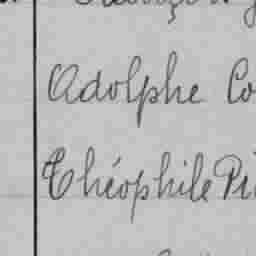 Adolphe Co
Théophile Pi